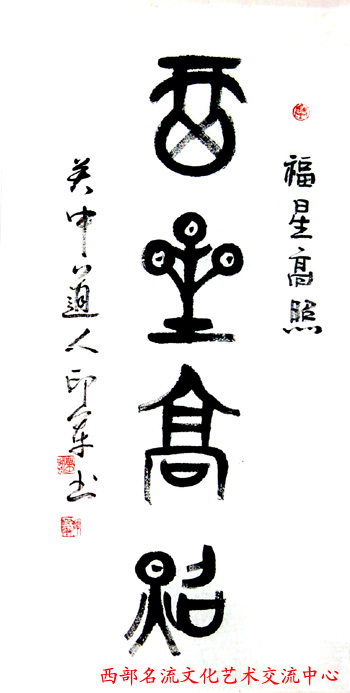 福星高照
福星高照
关中道人印军书
西部名流文化艺术交流中心